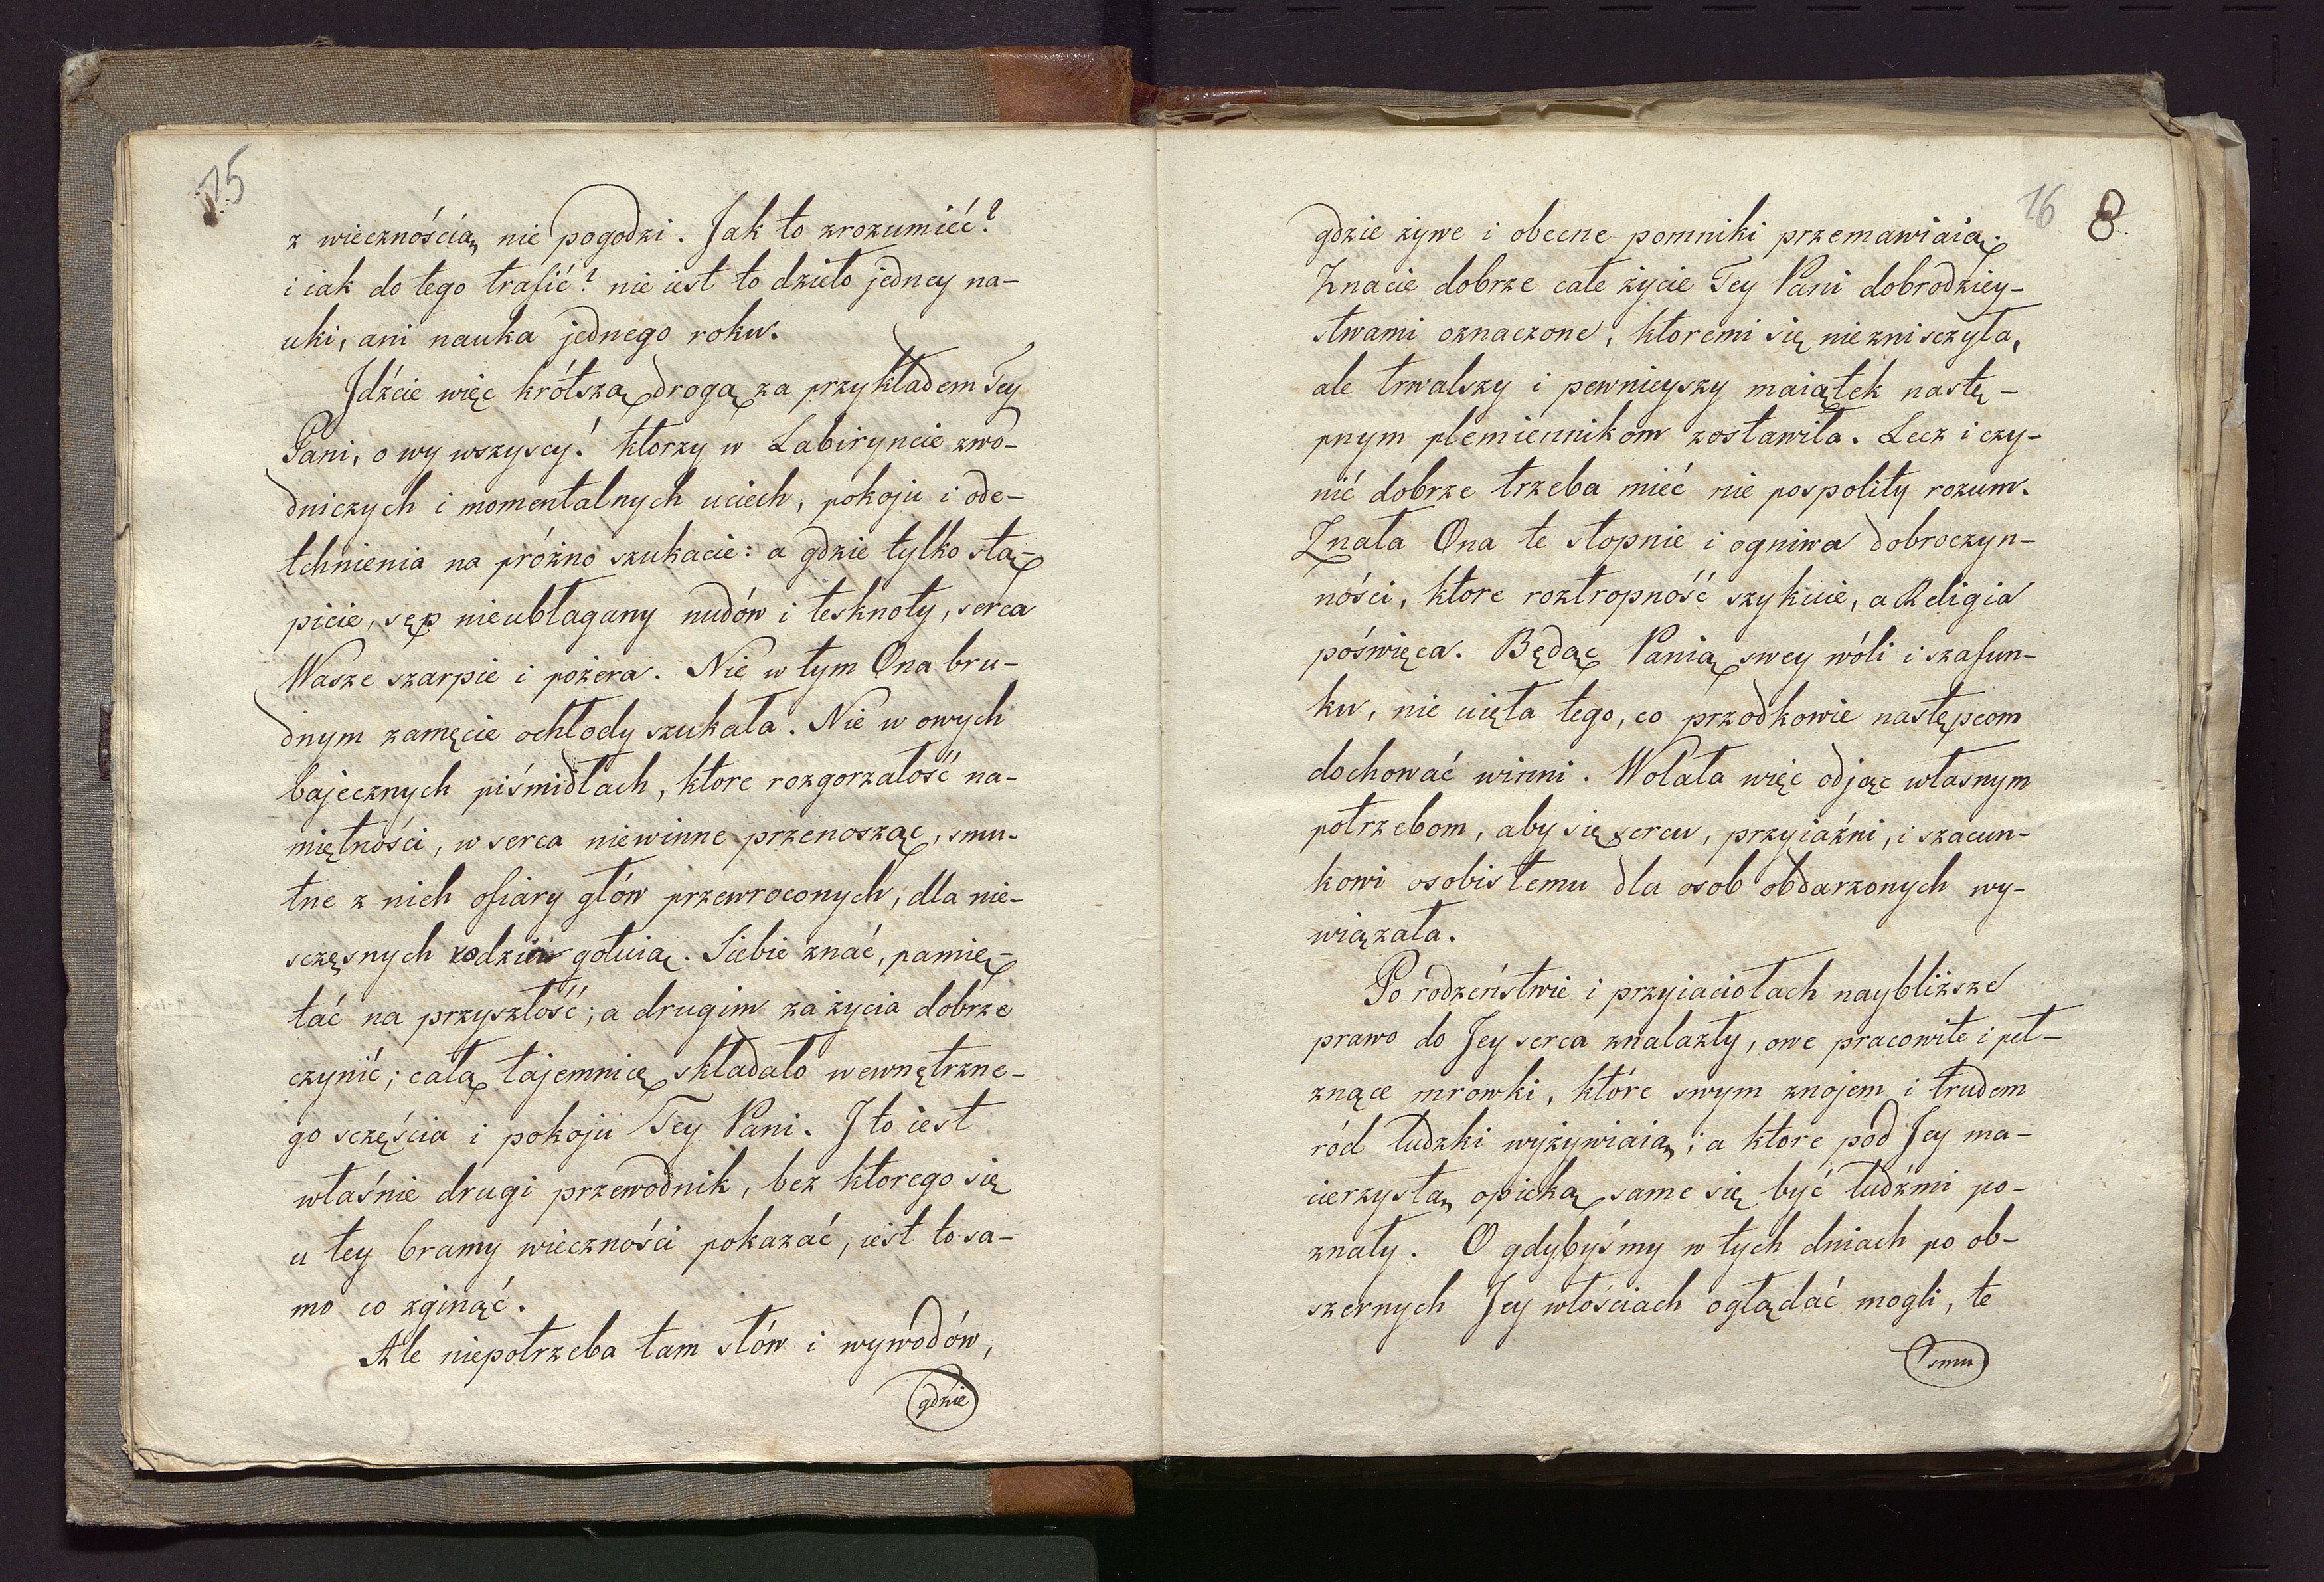 15
z wiecznością nie pogodzi. Jak to zrozumieć?
i iak do tego trafić? nie iest to dzieło jedney na-
uki, ani nauka jednego roku.
Jdźcie więc krótszą drogą za przykładem Tey
Pani, o wy wszyscy! ktorzy w Labiryncie zwo-
dniczych i momentalnych uciech, pokoju i ode-
tchnienia na próżno szukacie: a gdzie tylko stą-
picie, sęp nieubłagany nudów i tesknoty, serca
Wasze szarpie i pożera. Nie w tym Ona bru-
dnym zamęcie ochłody szukała. Nie w owych
bajecznych piśmidłach, ktore rozgorzałość na-
miętności, w serca niewinne przenosząc, smu-
tne z nich ofiary głów przewroconych, dla nie-
sczęsnych rodziców gotuią. Siebie znać, pamię-
tać na przyszłość; a drugim za życia dobrze
czynić; całą tajemnicę składało wewnętrzne-
go sczęścia i pokoju Tey Pani. J to iest
właśnie drugi przewodnik, bez ktorego się
u tey bramy wieczności pokazać, iest to sa-
mo co zginąć.
Ale niepotrzeba tam słów i wywodów,
gdzie
16 8
gdzie żywe i obecne pomniki przemawiaią.
Znacie dobrze całe życie Tey Pani dobrodziey-
stwami oznaczone, ktoremi się niezniszczyła,
ale trwalszy i pewnieyszy maiątek nastę-
pnym plemiennikom zostawiła. Lecz i czy-
nić dobrze trzeba mieć nie pospolity rozum.
Znała Ona te stopnie i ogniwa dobroczyn-
ności, ktore roztropność szykuie, a Religia
poświęca. Będąc Panią swey wóli i szafun-
ku, nie uięła tego, co przodkowie następcom
dochować winni. Wolała więc odjąc własnym
potrzebom, aby się sercu, przyiaźni, i szacun-
kowi osobistemu dla osob obdarzonych wy-
wiązała.
Po rodzeństwie i przyiaciołach naybliższe
prawo do Jey serca znalazły, owe pracowite i peł-
znące mrowki, które swym znojem i trudem
ród ludzki wyżywiaią; a ktore pod Jey ma-
cierzystą opieką same się być ludźmi po-
znały. O gdybyśmy w tych dniach po ob-
szernych Jey włościach oglądać mogli, te
smu